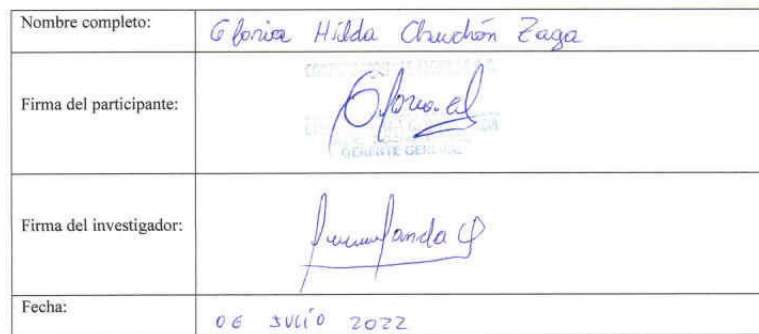 Nombre completo:
Gloria Hilda Chuchón Zaga
Firma del participante:
GERENTE GENERAL
Firma del investigador:
Fecha:
06 JULIO 2022